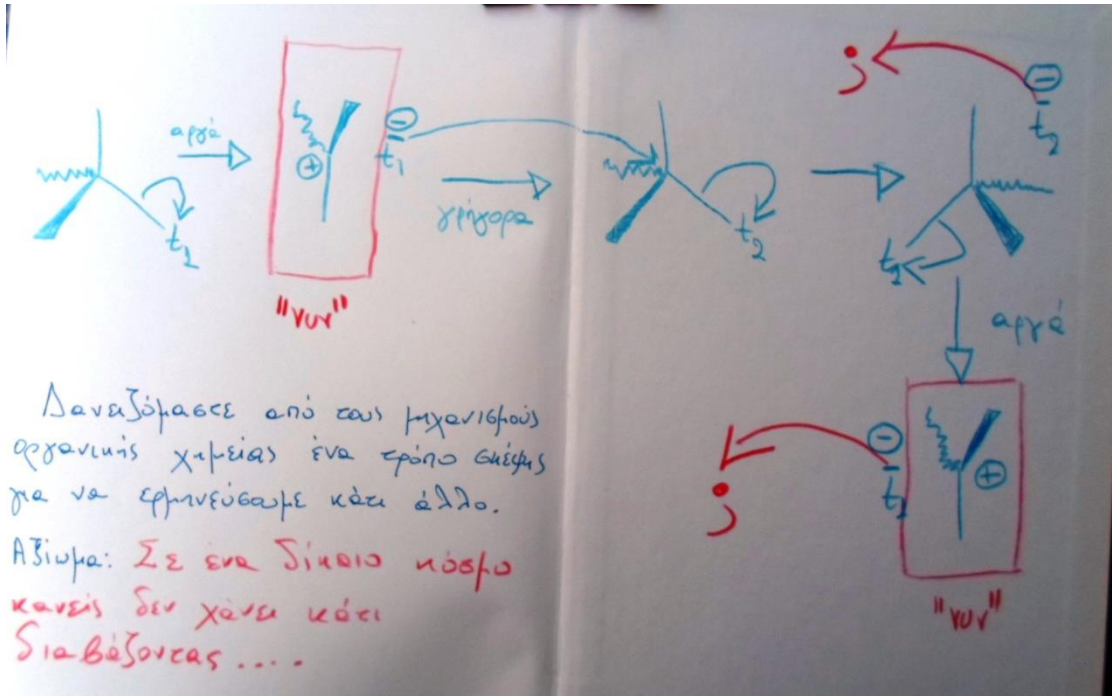 αργά
⊖
t₁
t₂
⊕
"νυν"
γρήγορα
t₂
;
⊖
t₂
t₂
αργά
Δανειζόμαστε από τους μηχανισμούς
οργανικής χημείας ένα τρόπο σκέψης
για να ερμηνεύσουμε κάτι άλλο.
Αξίωμα: Σε ένα δίκαιο κόσμο
κανείς δεν χάνει κάτι
διαβάζοντας ....
;
⊖
t₁
⊕
"νυν"